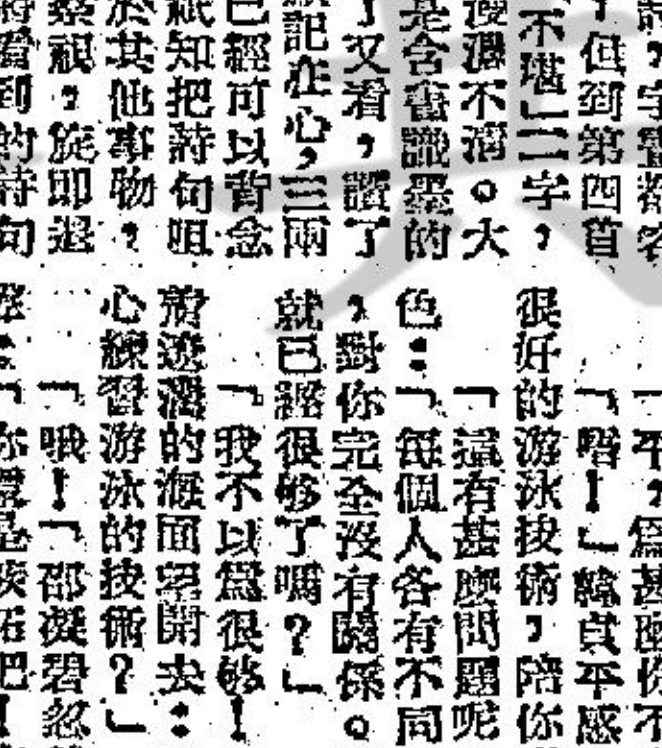 詩，字
，但到第四首
不堪」二字，
濕不清。大
是含蓄識墨的
了又看，讚了
記在心，三兩
已經可以背念
祇知把詩句咀
於其他事物，
察視，旋即退
將看到的詩句
平，爲甚麼你不
「唔！」韓貞平感
很好的游泳技術，陪你
「這有甚麼問題呢
色：「每個人各有不同
，對你完全沒有關係。
就已經很够了嗎？」
「我不以爲很够！
前遼濶的海面望開去：
心練習游泳的技術？」
「哦！「邵凝碧忽
：「你還是